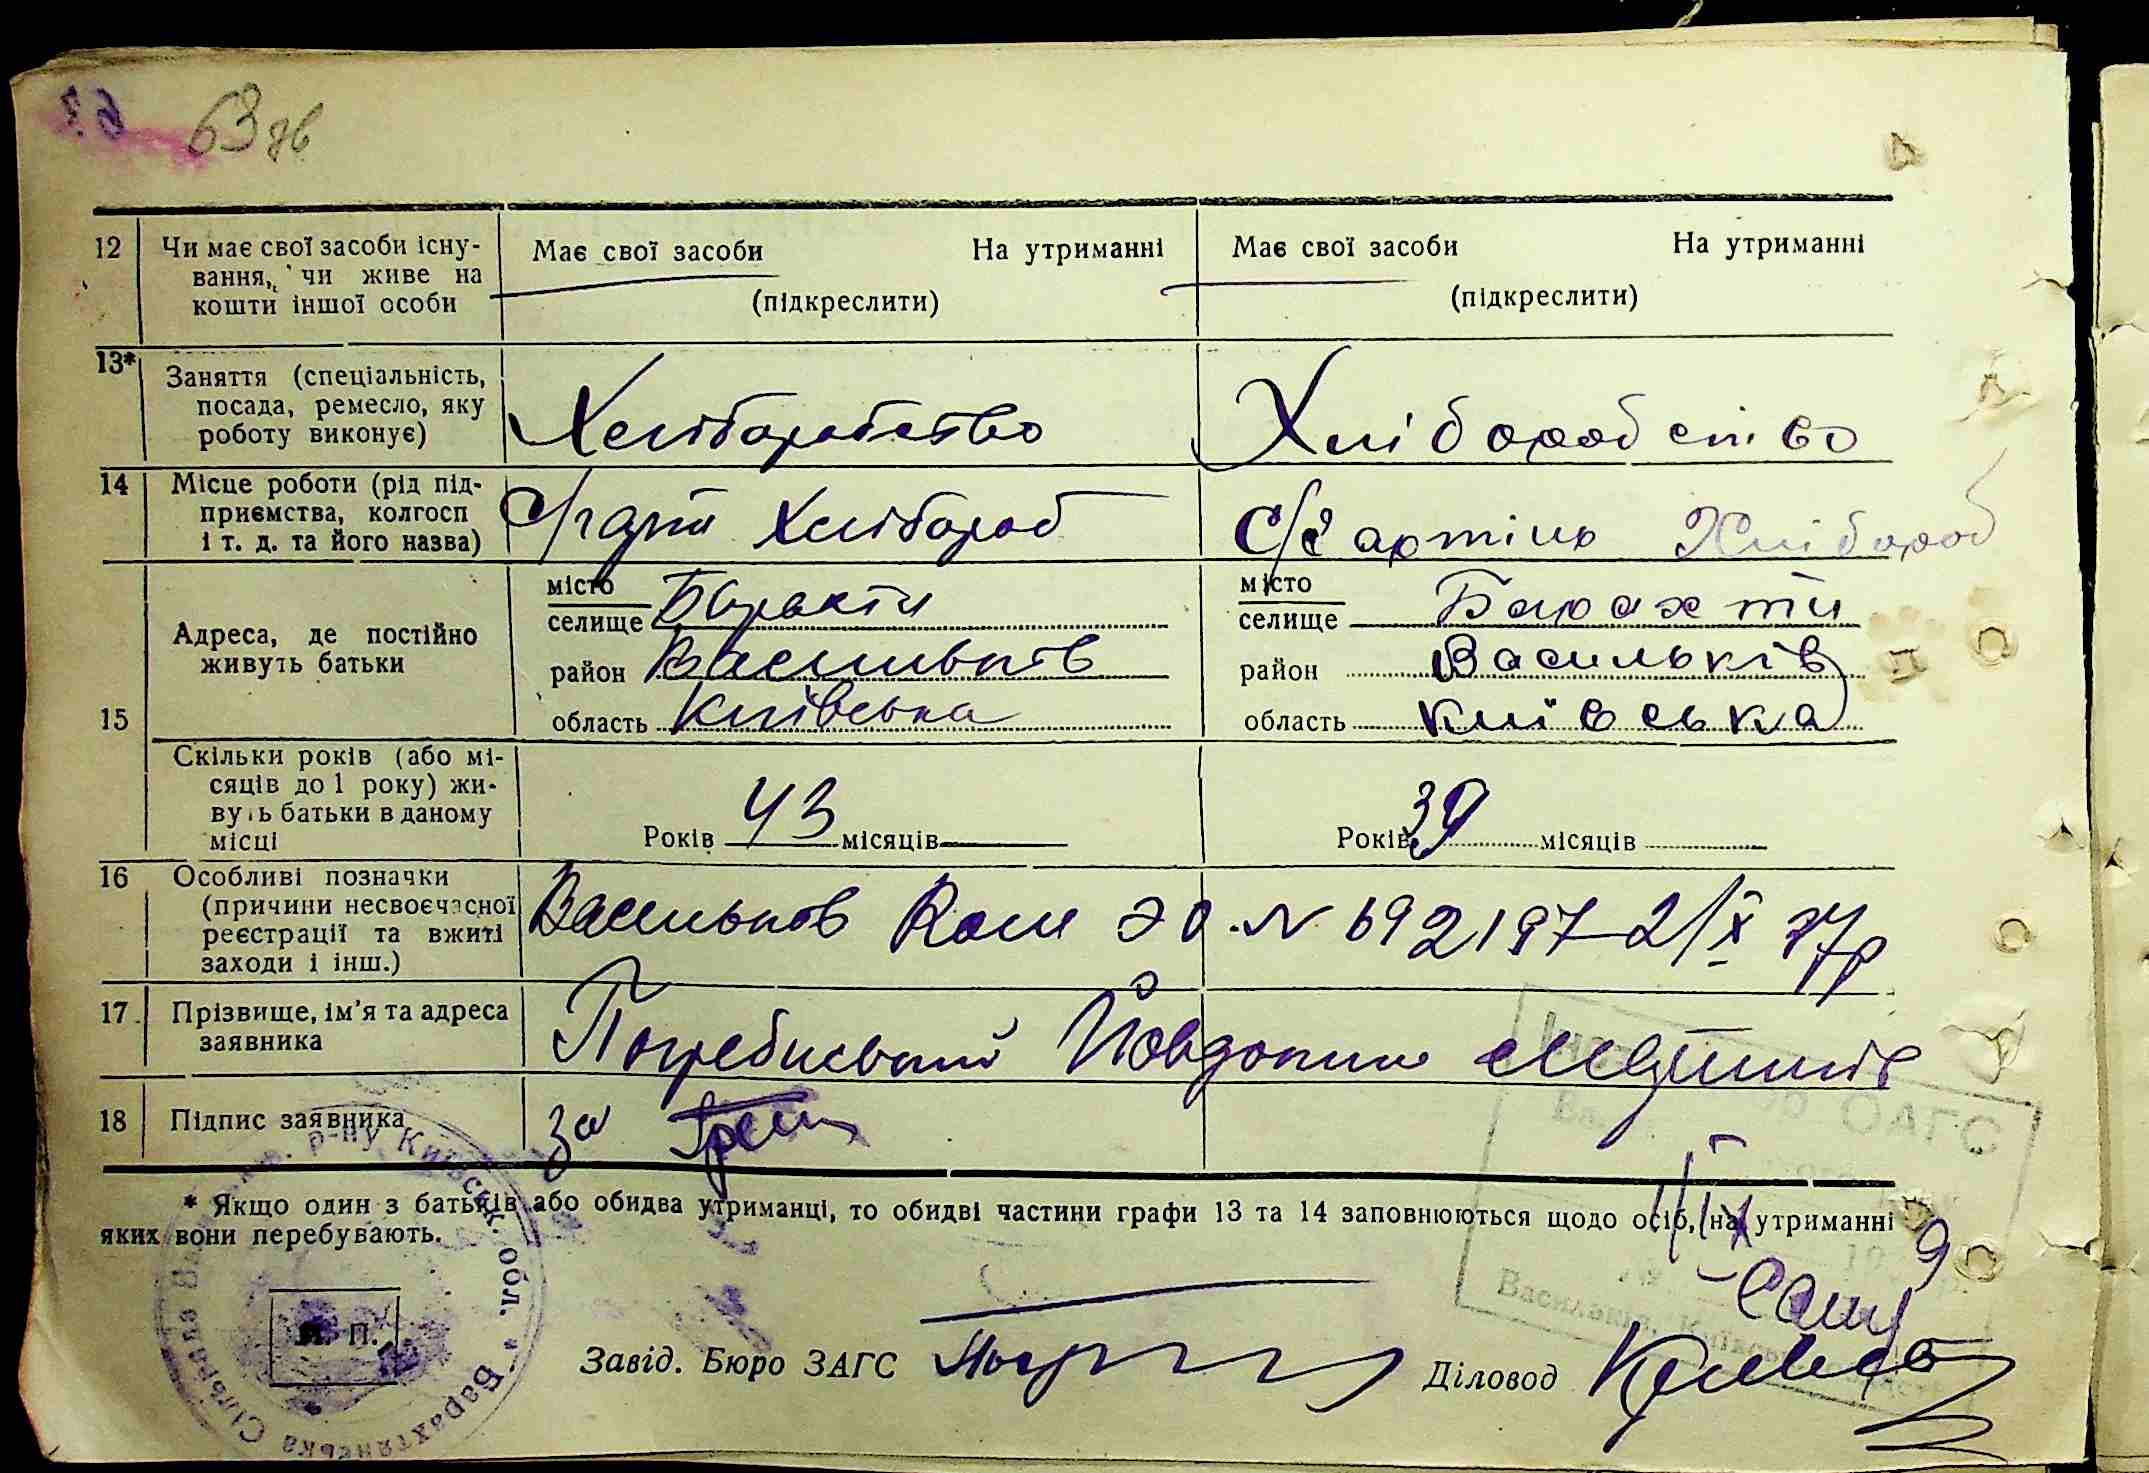 63 зв
12 Чи має свої засоби існу-
вання, чи живе на
кошти іншої особи
Має свої засоби На утриманні
(підкреслити)
Має свої засоби На утриманні
(підкреслити)
13* Заняття (спеціальність,
посада, ремесло, яку
роботу виконує)
Хліборобство
Хліборобство
14 Місце роботи (рід під-
приємства, колгосп
і т. д. та його назва)
Хлібороб
С/г артіль Хлібороб
15 Адреса, де постійно
живуть батьки
місто
селище Барахти
район Васильків
область Київська
місто
селище Барахти
район Васильків
область Київська
Скільки років (або мі-
сяців до 1 року) жи-
вуть батьки в даному
місці
Років 43 місяців
Років 39 місяців
16 Особливі позначки
(причини несвоєчасної
реєстрації та вжиті
заходи і інш.)
Васильков № 692197 2/X 37р
17 Прізвище, ім'я та адреса
заявника
Погребиський
18 Підпис заявника
за
* Якщо один з батьків або обидва утриманці, то обидві частини графи 13 та 14 заповнюються щодо осіб, на утриманні
яких вони перебувають.
М. П.
р-ну Київськ. обл. * Барахтянська Сільрада
ОАГС
Завід. Бюро ЗАГС
Діловод